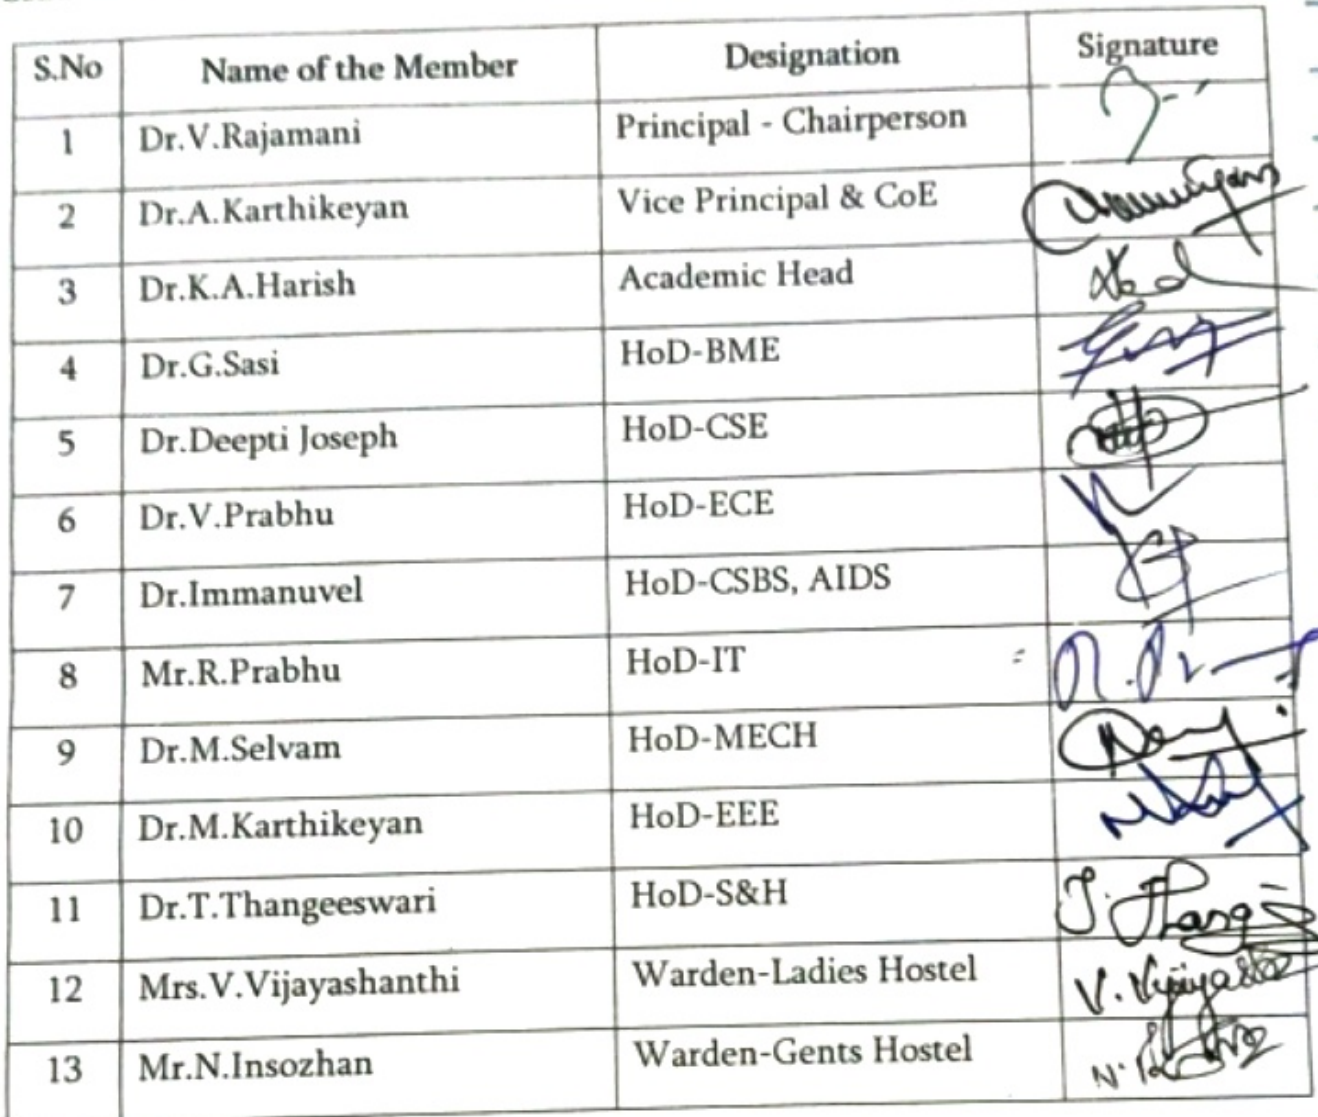 S.No Name of the Member Designation Signature
1 Dr.V.Rajamani Principal - Chairperson
2 Dr.A.Karthikeyan Vice Principal & CoE
3 Dr.K.A.Harish Academic Head
4 Dr.G.Sasi HoD-BME
5 Dr.Deepti Joseph HoD-CSE
6 Dr.V.Prabhu HoD-ECE
7 Dr.Immanuvel HoD-CSBS, AIDS
8 Mr.R.Prabhu HoD-IT
9 Dr.M.Selvam HoD-MECH
10 Dr.M.Karthikeyan HoD-EEE
11 Dr.T.Thangeeswari HoD-S&H
12 Mrs.V.Vijayashanthi Warden-Ladies Hostel
13 Mr.N.Insozhan Warden-Gents Hostel